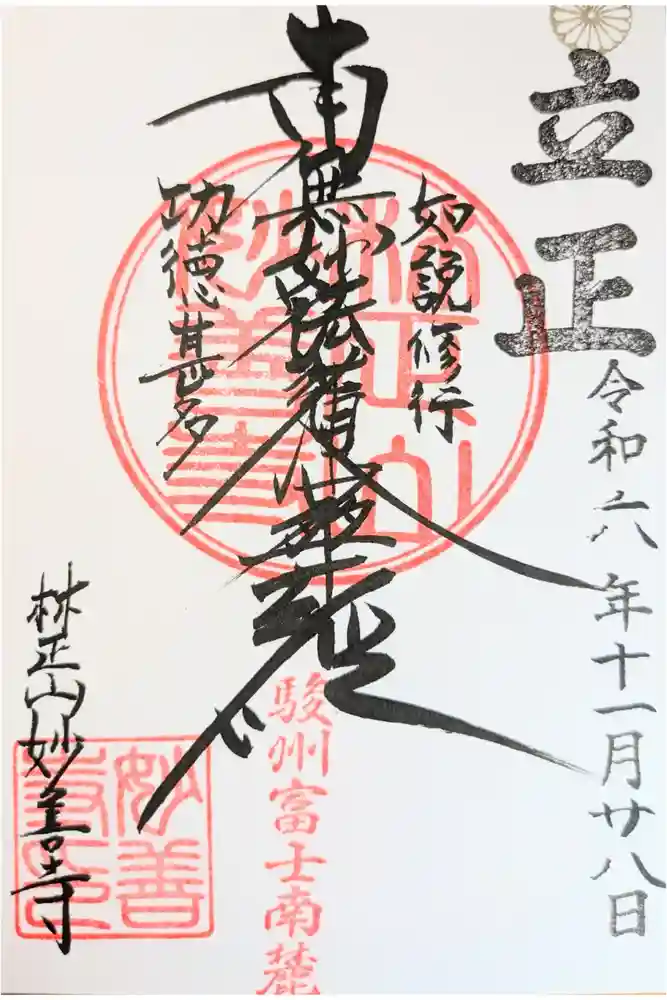 立正
令和六年十一月廿八日
如説修行
南無妙法蓮華経
功徳甚多
駿州富士南麓
林正山妙善寺
妙善
寺印